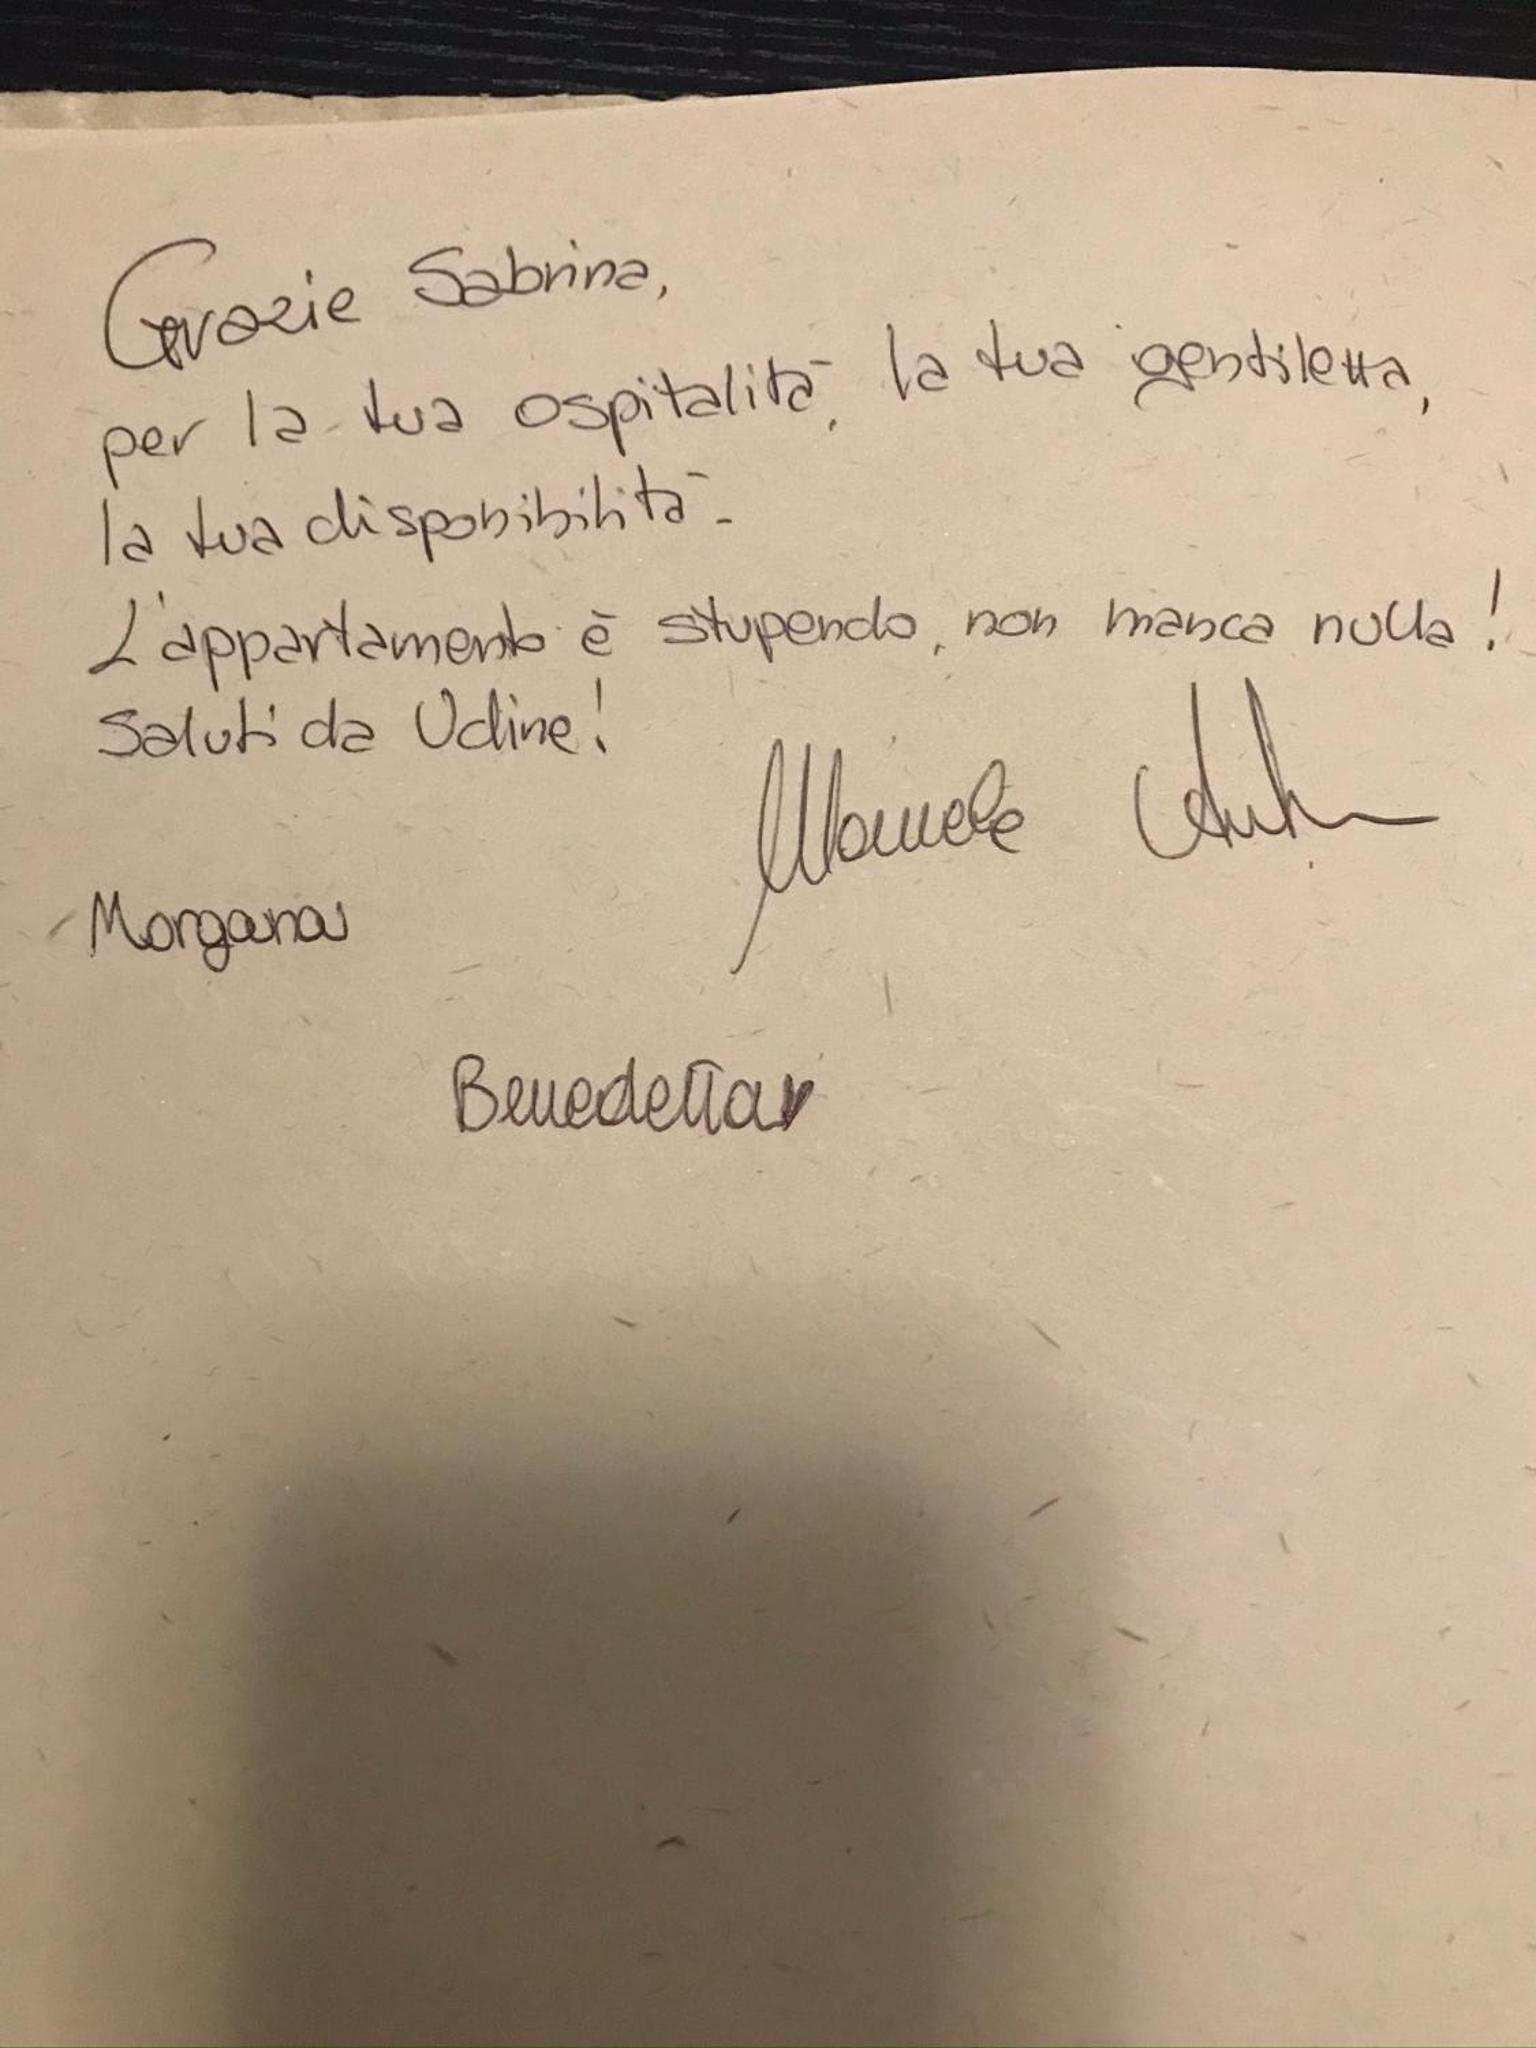 Grazie Sabrina,
per la tua ospitalità, la tua gentiletta,
la tua disponibilità.
L'appartamento è stupendo, non manca nulla!
Saluti da Udine!
Morgana
Benedetta